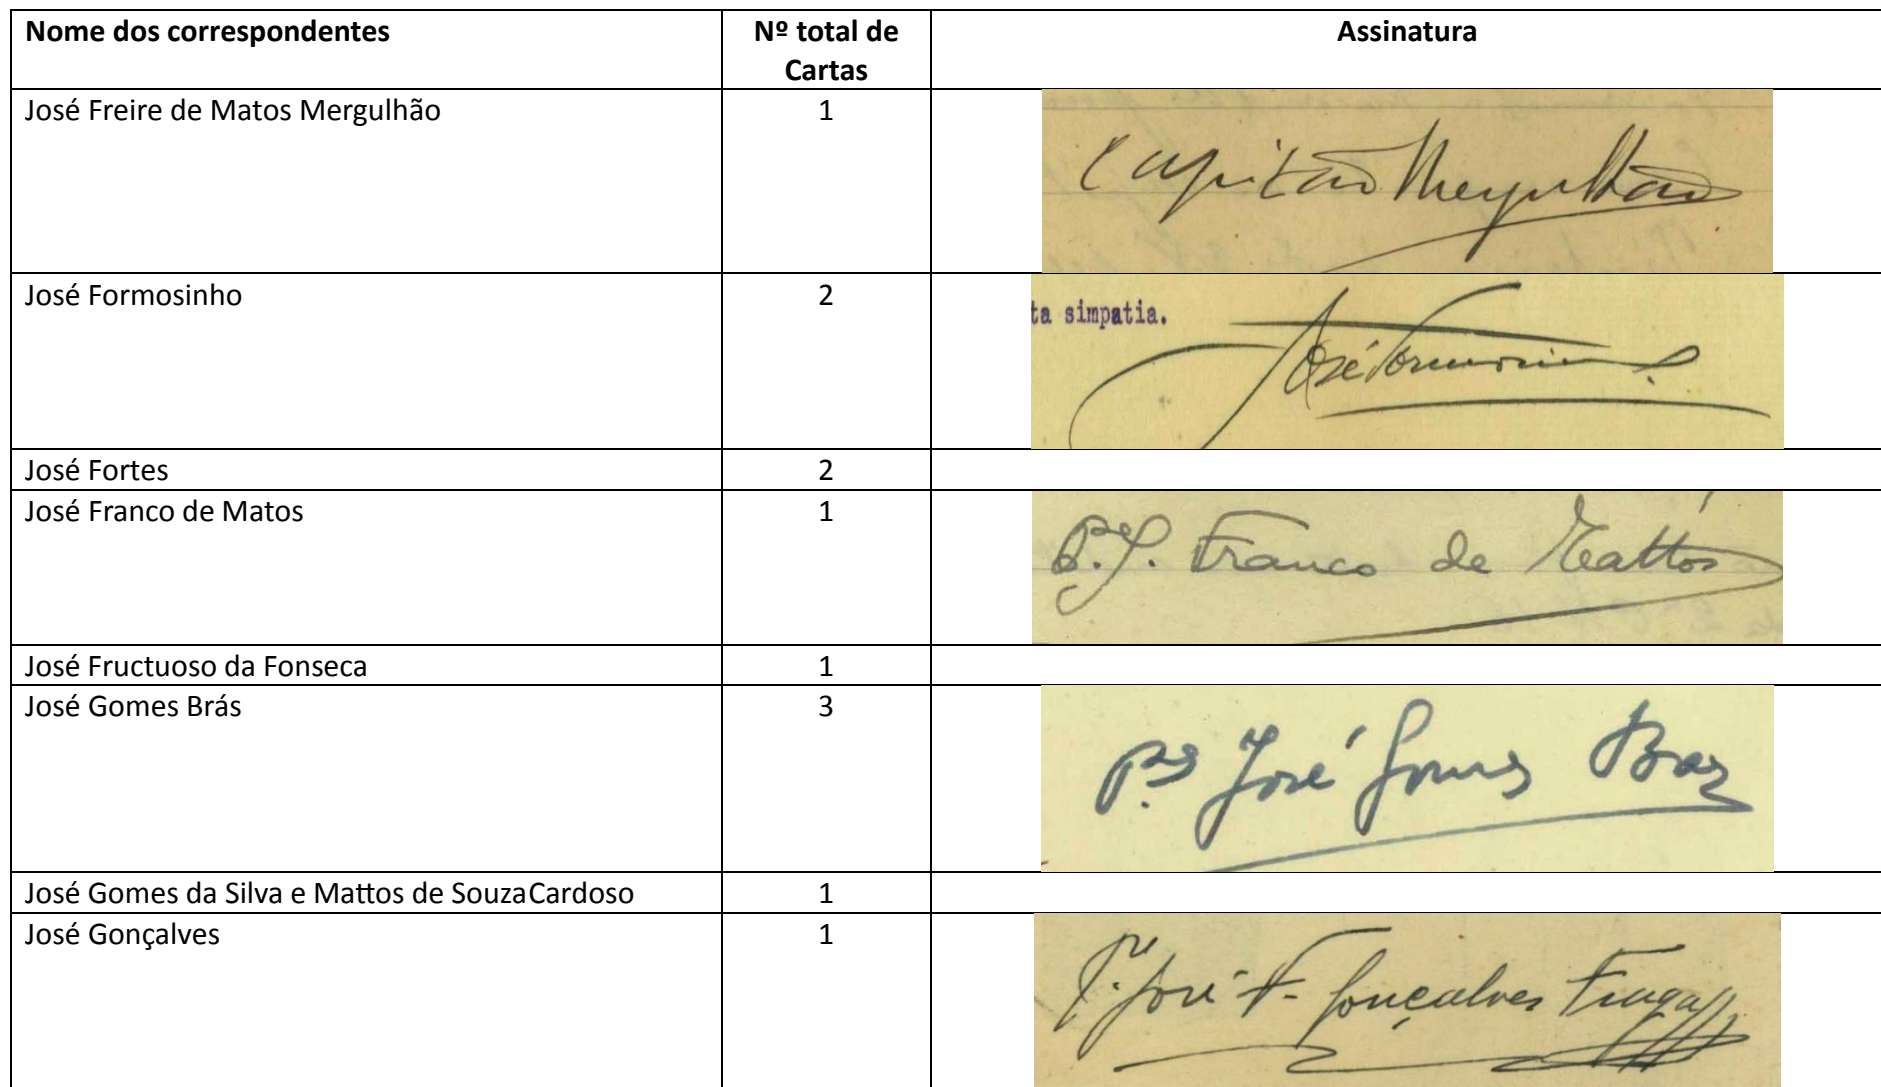 Nome dos correspondentes
Nº total de
Cartas
Assinatura
José Freire de Matos Mergulhão
1
Capitão Mergulhão
José Formosinho
2
ta simpatia.
José Formosinho
José Fortes
2
José Franco de Matos
1
P.e J. Franco de Mattos
José Fructuoso da Fonseca
1
José Gomes Brás
3
P.e José Gomes Braz
José Gomes da Silva e Mattos de SouzaCardoso
1
José Gonçalves
1
P.e José F. Gonçalves